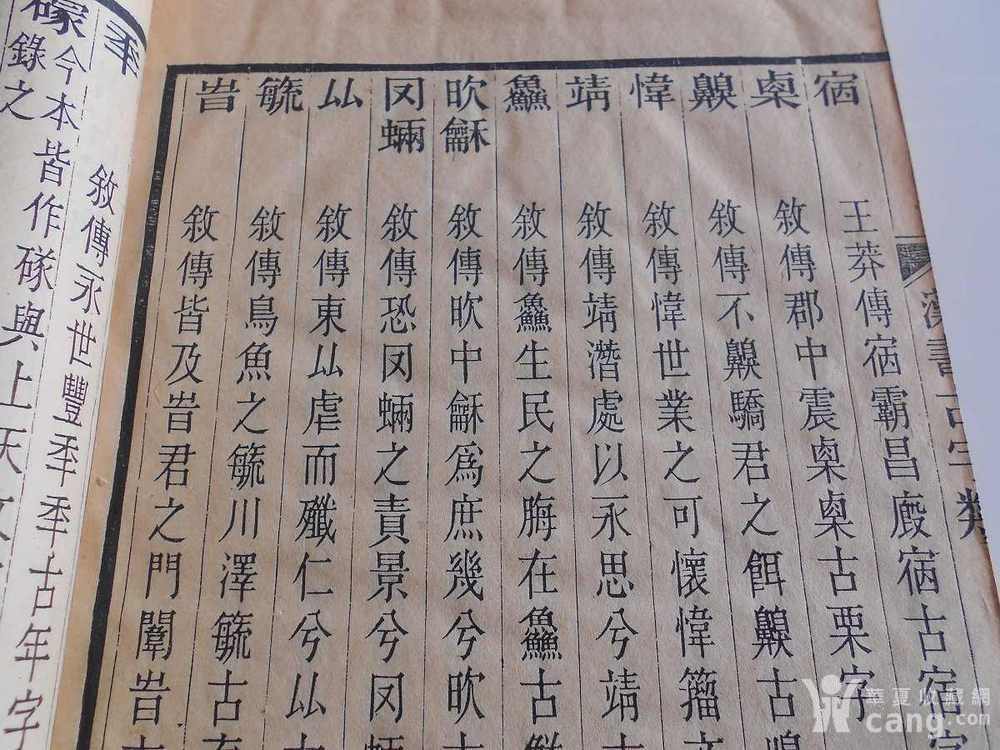 漢書古字類
㝛 王莽傳㝛霸昌廄㝛古宿字
㮚 敘傳郡中震㮚㮚古栗字
齅 敘傳不齅驕君之餌齅古
愇 敘傳愇世業之可懷愇籒文
靖 敘傳靖潛處以永思兮靖古
鱻 敘傳鱻生民之脢在鱻古
欥龢 敘傳欥中龢爲庶幾兮欥
罔蜽 敘傳恐罔蜽之責景兮罔蜽
厸 敘傳東厸虐而殲仁兮厸古
毓 敘傳鳥魚之毓川澤毓古
旹 敘傳皆及旹君之門闈旹古
秊 敘傳永世豐秊秊古年字
今本皆作 與上
錄之
華夏收藏網
cang.com